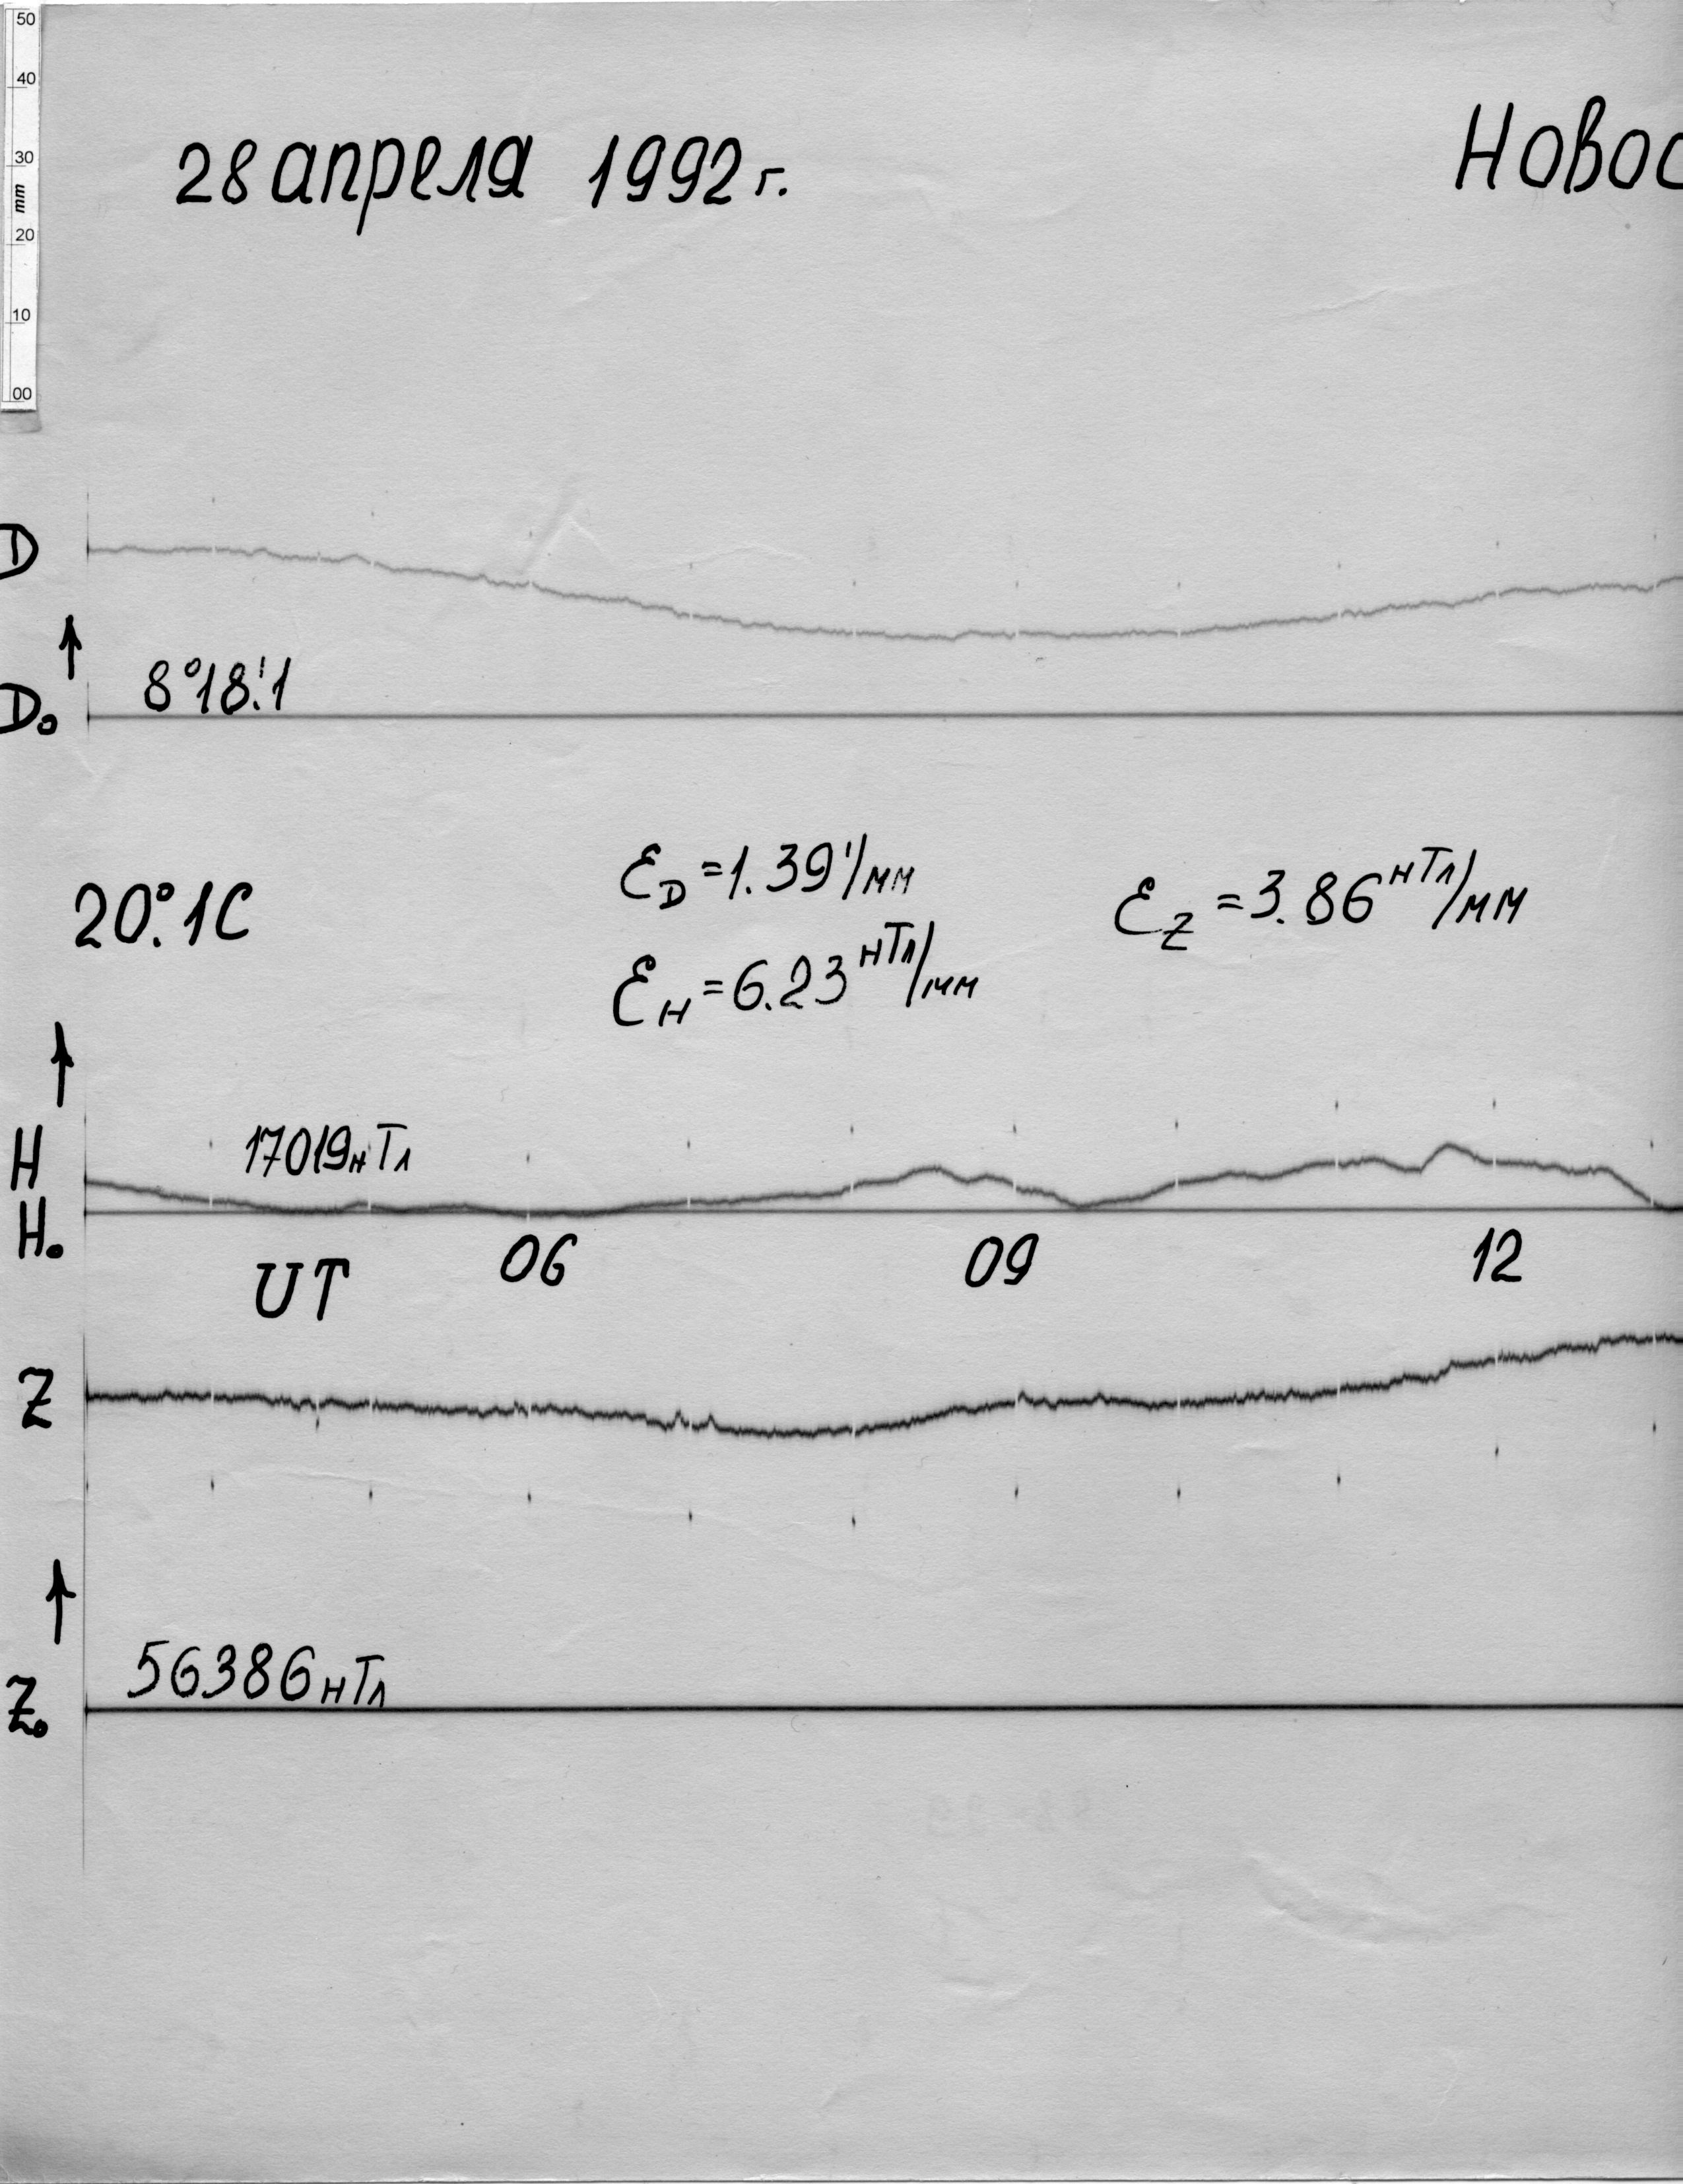 50
40
30
mm
20
10
00
28 апреля 1992 г.
Новос
D
8°18.'1
D₀
ε_D = 1.39'/мм
ε_Z = 3.86 нТл/мм
20.°1C
ε_H = 6.23 нТл/мм
H
17019 нТл
H₀
UT
06
09
12
Z
56386 нТл
Z₀